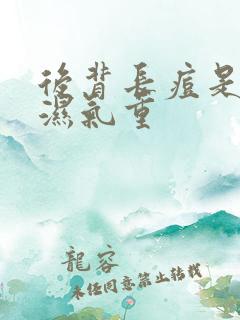 後背長痘是
濕氣重
龍容
未任同意禁止转載